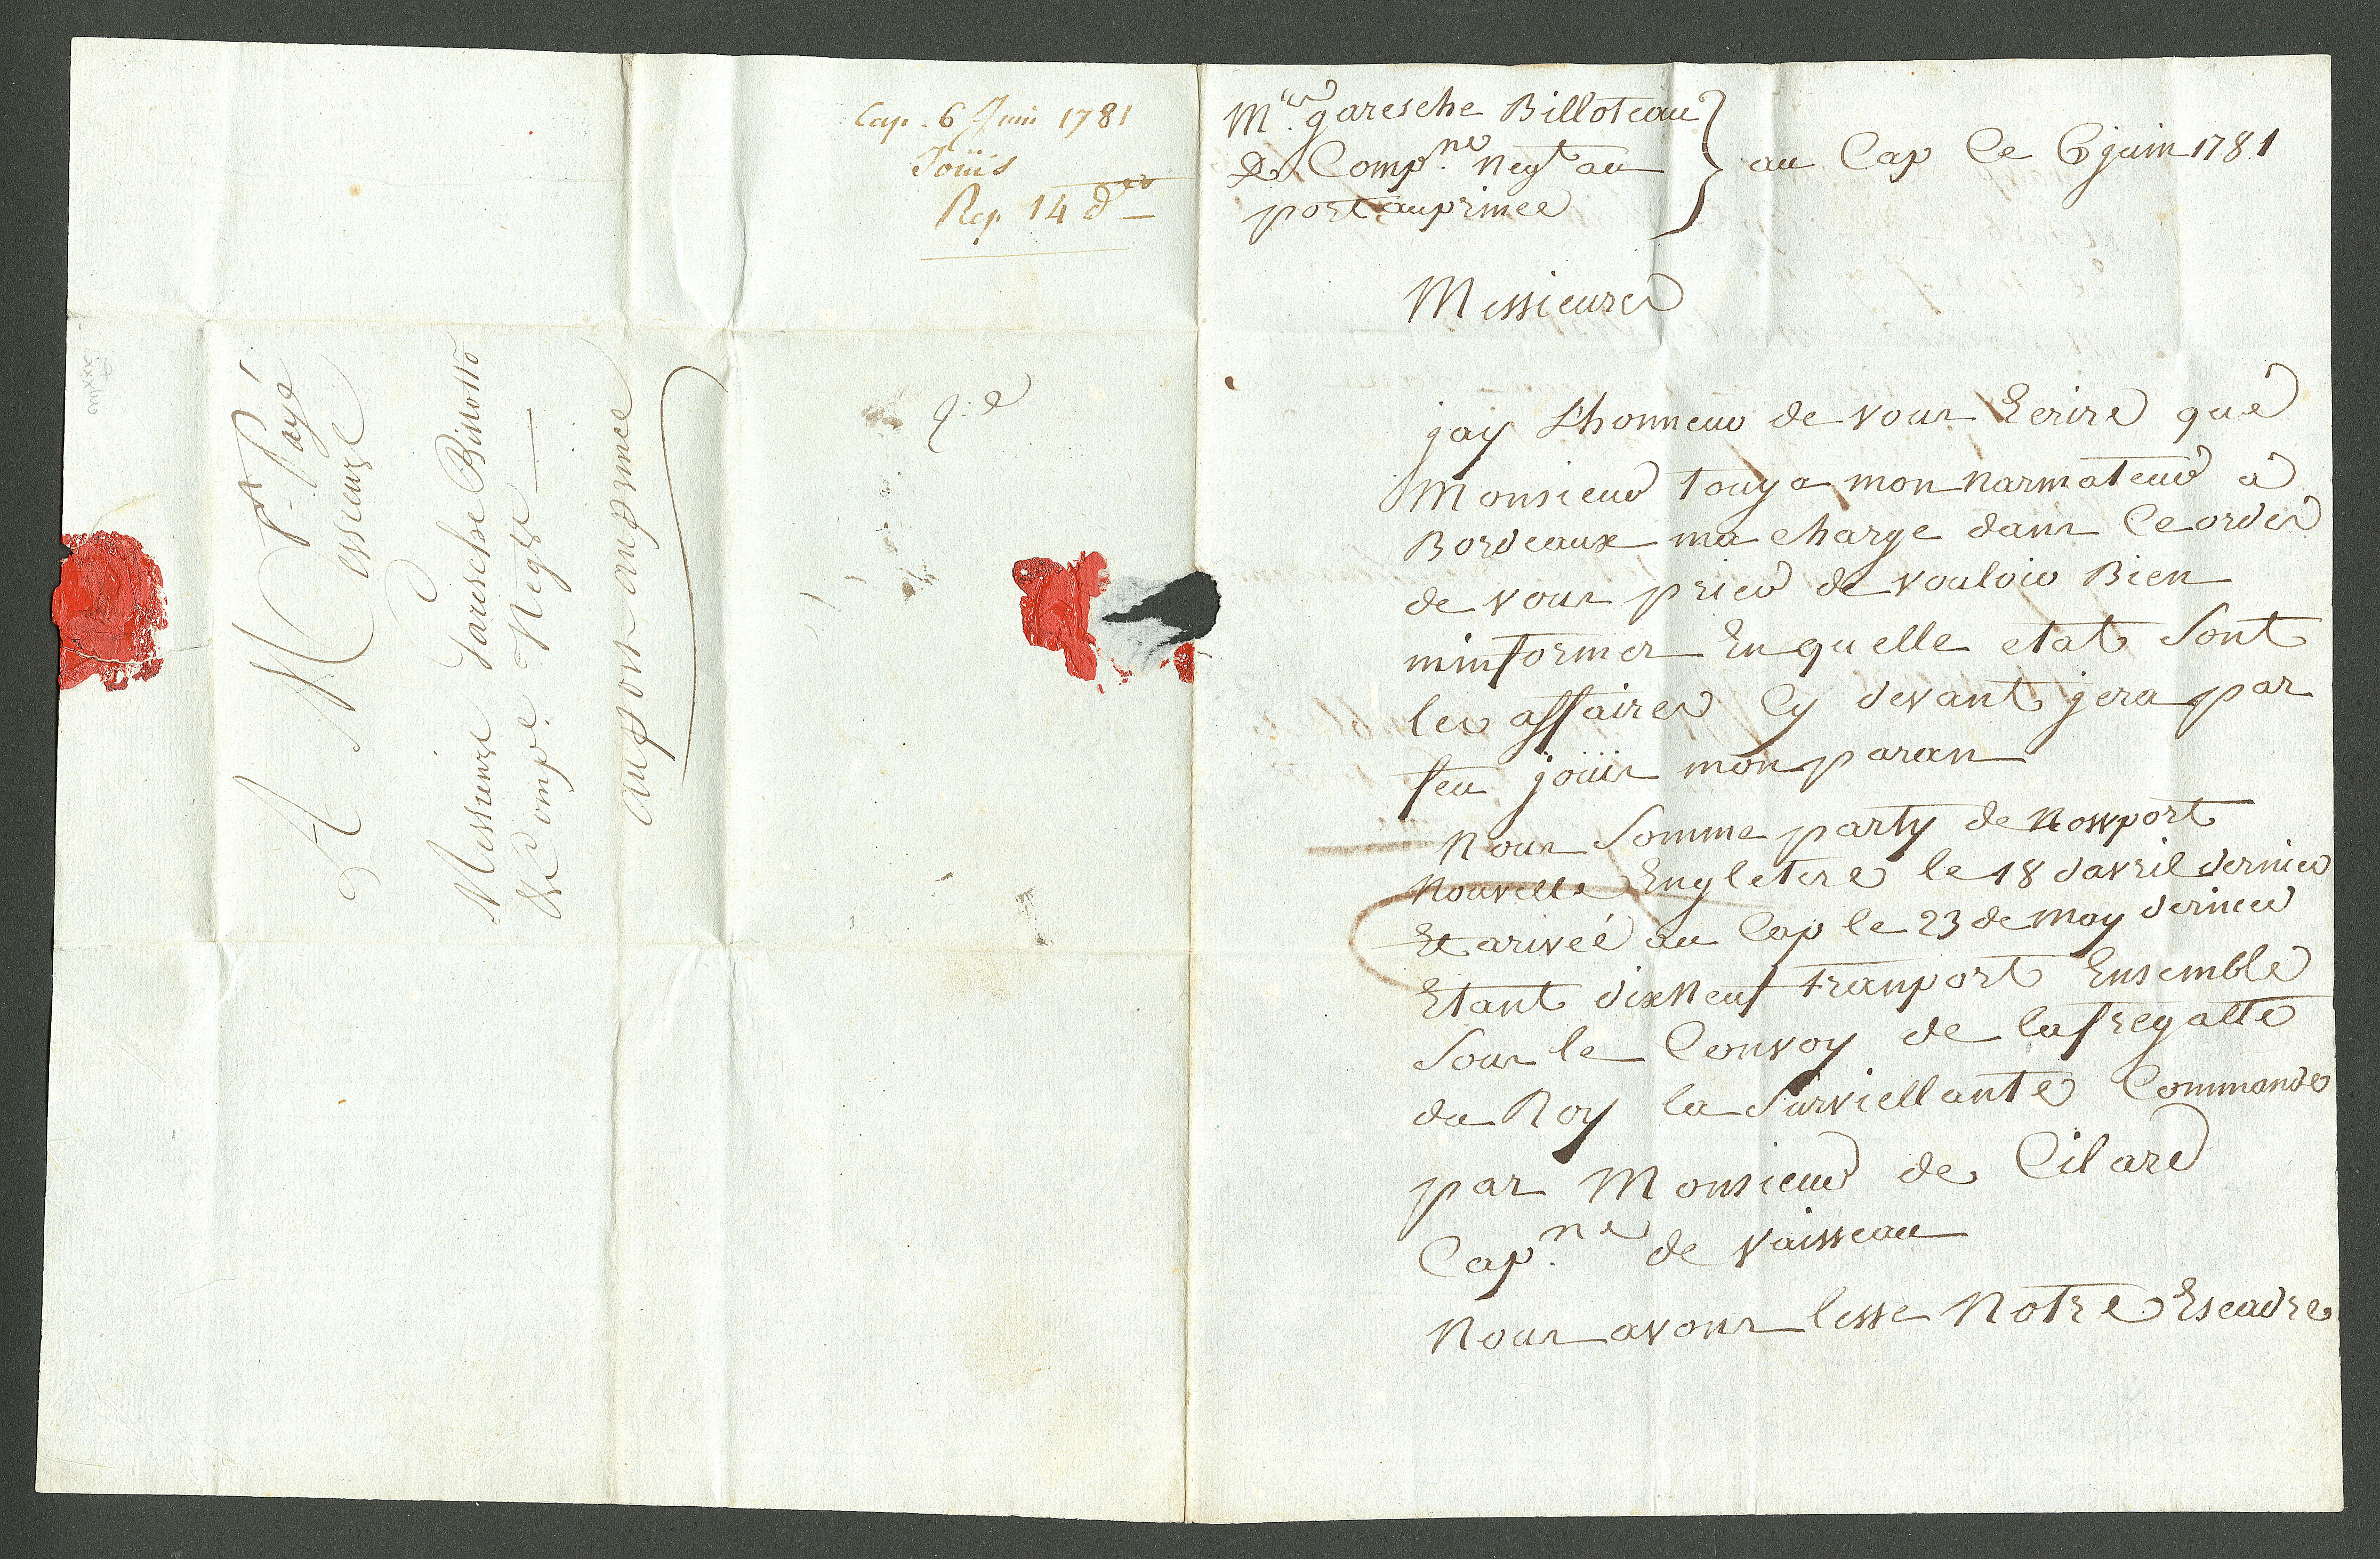 Cap. 6 Juin 1781
Joüis
Rep. 14 d.
Mrs. garesche Billoteau
& Compne. negt au
port auprince
au Cap Ce 6 juin 1781
Messieurs
jay Lhonneur de vous Ecrire que
Monsieur touya mon narmateur a
Bordeaux ma charge dans Ce ordre
de vous prier de vouloir Bien
minformer En quelle etat Sont
les affaires Cy devant jera par
feu joüis mon paran
Nous Somme party de Nowport
nouvelle Engletere le 18 davril dernier
Et arivée au Cap le 23 de may dernier
Etant dixneuf tranport Ensemble
Sous le Convoy de lafregatte
du Roy la Surviellante Commande
par Monsieur de Cilard
Capne. de vaisseau
Nous avons lesse Notre Escadre
Pt. Payé
A Messieurs
Messieurs Garesche Billotto
& Compe. Negts
au port auprince